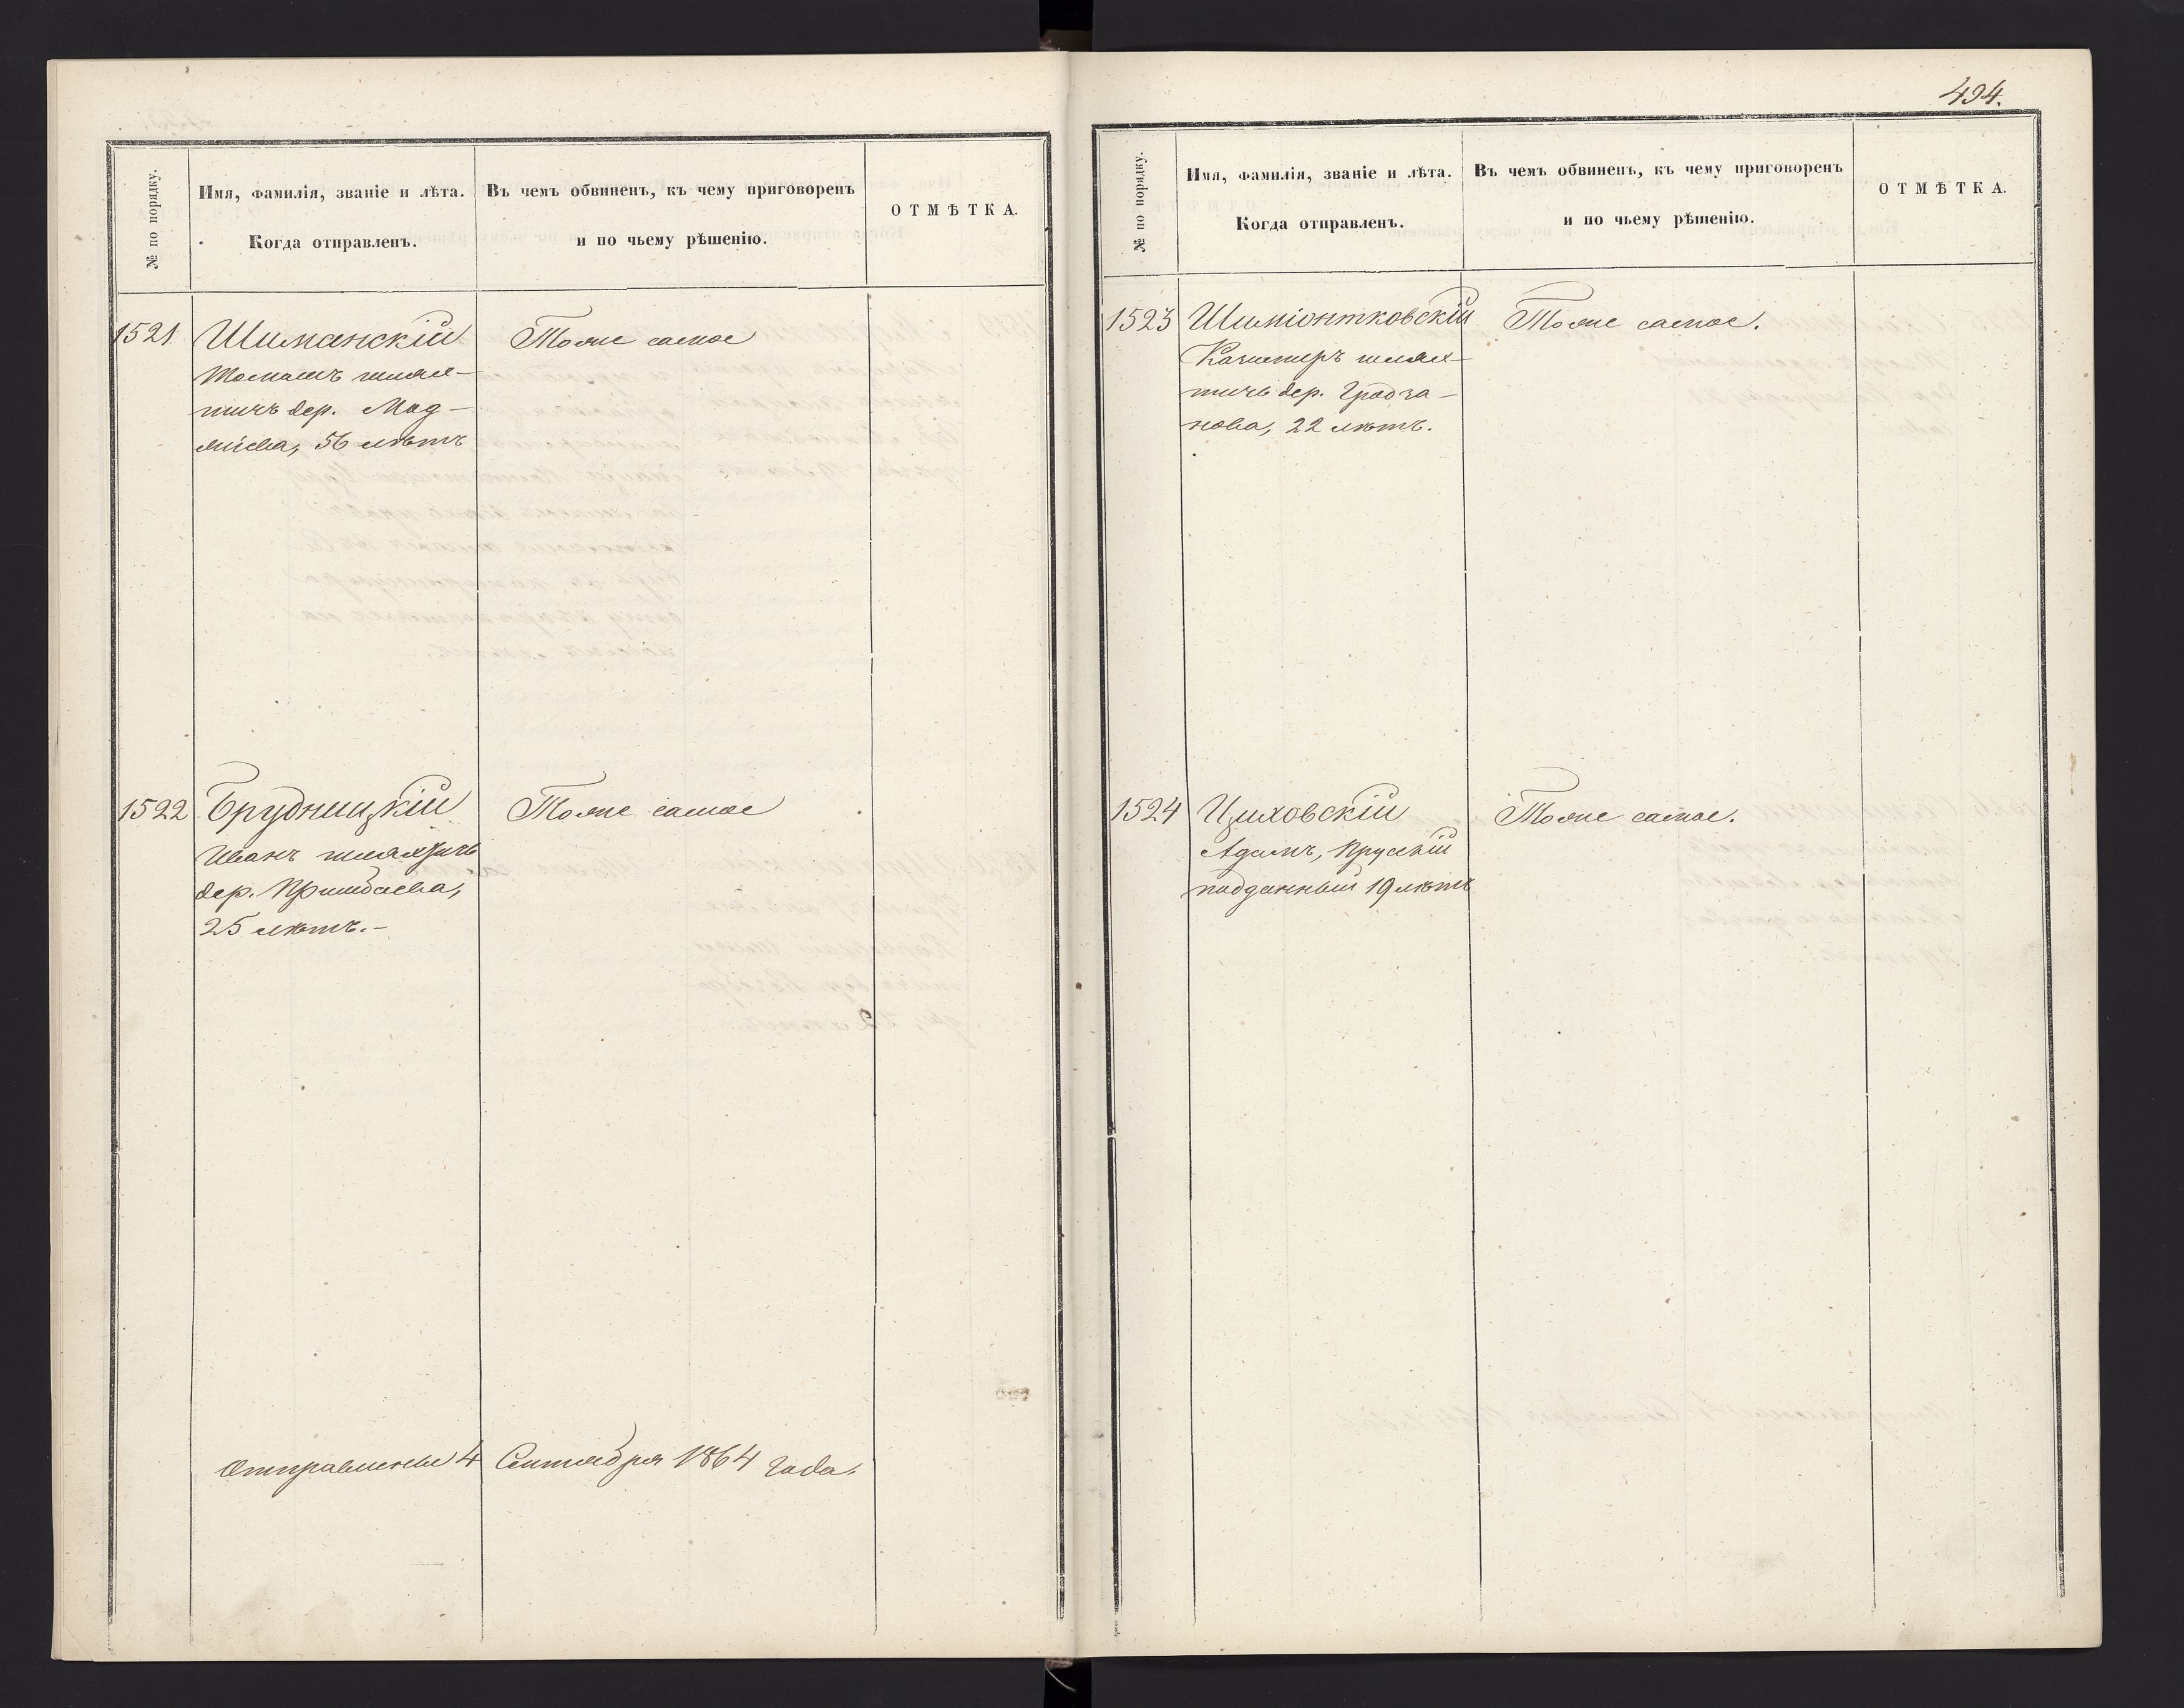 494.
№ по порядку.
Имя, фамилія, званіе и лѣта.
Когда отправленъ.
Въ чемъ обвиненъ, къ чему приговоренъ
и по чьему рѣшенію.
ОТМѢТКА.
1521
Шиманскій
Томашъ шлях-
тичъ дер. Мод-
лііева, 56 лѣтъ
Тоже самое
1522
Брудницкій
Иванъ шляхтичъ
дер.
25 лѣтъ.-
Тоже самое
Отправлены 4 Сентября 1864 года.
№ по порядку.
Имя, фамилія, званіе и лѣта.
Когда отправленъ.
Въ чемъ обвиненъ, къ чему приговоренъ
и по чьему рѣшенію.
ОТМѢТКА.
1523
Шиміонтковскій
Казимиръ шлях-
тичъ дер. Градза-
нова, 22 лѣтъ.
Тоже самое.
1524
Циховскій
Адамъ, Прусскій
подданный 19 лѣтъ
Тоже самое.